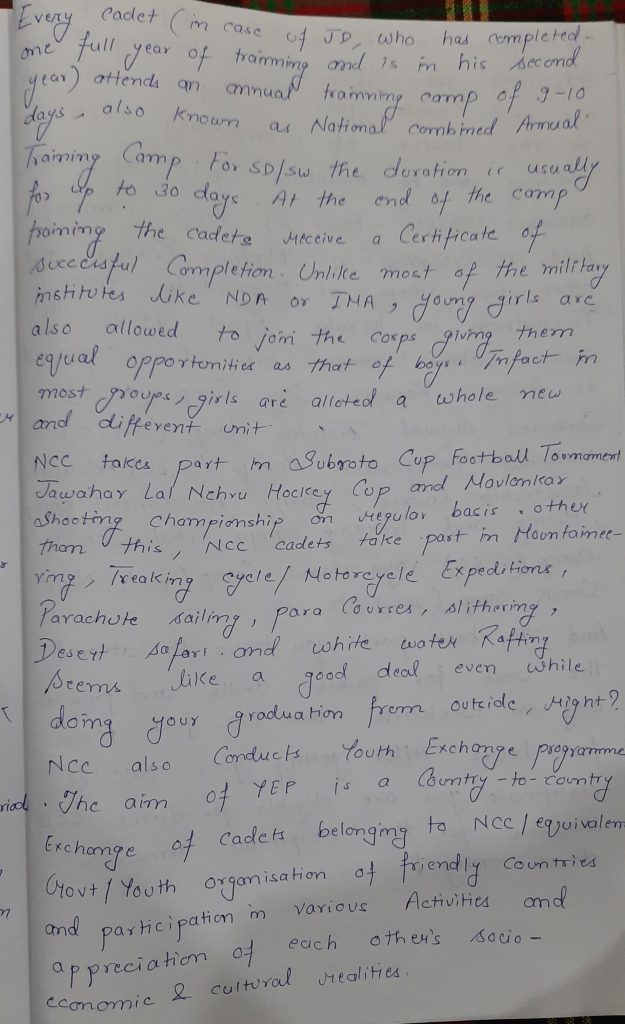 Every cadet (in case of JD, who has completed-
one full year of trainning and is in his second
year) attends an annual trainning camp of 9-10
days, also known as National combined Annual
Training Camp. For SD/SW the duration is usually
for up to 30 days. At the end of the camp
training the cadets receive a Certificate of
successful Completion. Unlike most of the military
institutes like NDA or IMA, young girls are
also allowed to join the corps giving them
equal opportunities as that of boys. Infact in
most groups, girls are alloted a whole new
and different unit.
NCC takes part in Subroto Cup Football Tournament
Jawahar Lal Nehru Hockey Cup and Mavlankar
Shooting championship on regular basis. other
than this, NCC cadets take part in Mountainee-
ring, Treaking cycle/Motorcycle Expeditions,
Parachute sailing, para Courses, slithering,
Desert safari. and white water Rafting
seems like a good deal even while
doing your graduation from outside, right?
NCC also Conducts Youth Exchange programme
. The aim of YEP is a Country-to-country
Exchange of cadets belonging to NCC/equivalen
Govt/Youth organisation of friendly Countries
and participation in various Activities and
appreciation of each other's socio-
economic & cultural realities.